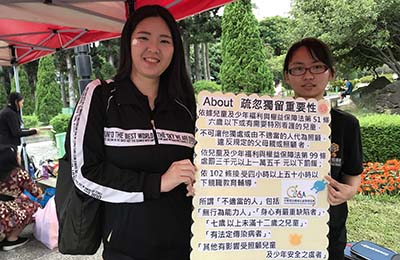 About 疏忽獨留重要性
依據兒童及少年福利與權益保障法第 51 條
六歲以下或有需要特別看護的兒童,
不可讓他獨處或由不適當的人代為照顧。
違反規定的父母親或照顧者,
依兒童及少年福利與權益保障法第 99 條
處罰三千元以上一萬五千元以下罰鍰;
依 102 條接受四小時以上五十小時以
下親職教育輔導。
所謂「不適當的人」包括
「無行為能力人」、「身心有嚴重缺陷者」、
「七歲以上未滿十二歲之兒童」、
「有法定傳染病者」、
「其他有影響受照顧兒童
及少年安全之虞者」